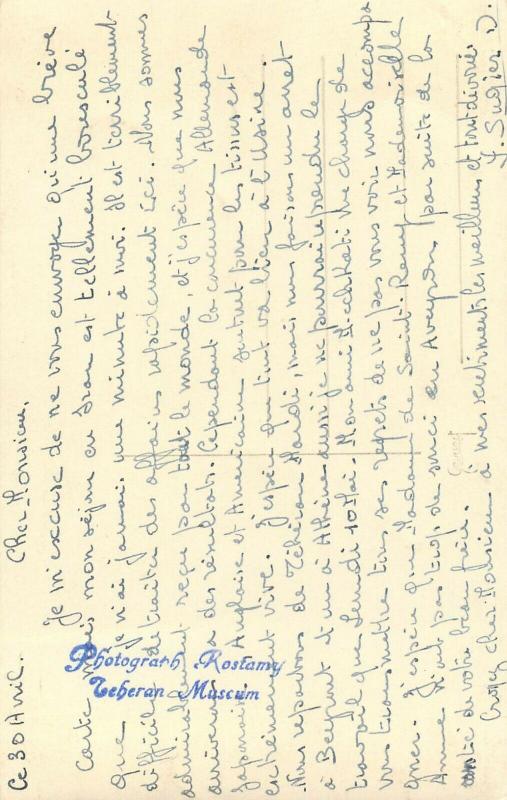 Ce 30 Avril. Cher Monsieur,
Je m'excuse de ne vous envoyer qu'une brève
carte mais mon séjour en Iran est tellement bousculé
que je n'ai jamais une minute à moi. Il est terriblement
difficile de traiter des affaires rapidement ici. Nous sommes
admirablement reçu par tout le monde, et j'espère que nous
arriverons à des résultats. Cependant la concurrence Allemande
Japonaise, Anglaise et Américaine surtout pour les tissus est
extrêmement vive. J'espère que tout va bien à l'Usine.
Nous repartons de Téhéran Mardi, mais nous faisons un arret
à Beyrout et un à Athène aussi je ne pourrai prendre le
travail que Lundi 10 Mai. Mon ami me charge de
vous transmettre tous ses regrets de ne pas vous voir nous accompa
gner. J'espère que Madame de Saint Remy et Mademoiselle
Anne n'ont pas trop de souci en Aveyron par suite de la
de votre beau frère.
Croyez cher Monsieur à mes sentiments les meilleurs et tout dévoués
Photograph Rostamy
Teheran Museum